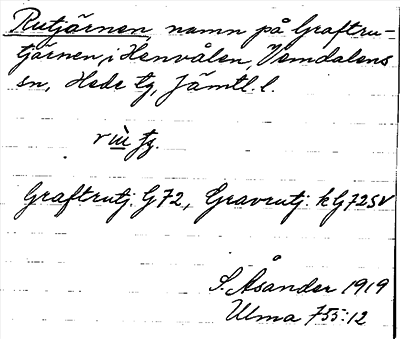 Rutjärnen, namn på Graftru-
tjärnen i Henvålen, Vemdalens
sn, Hede tg, Jämtl. l.
Graftrutj. G72, Gravrutj. kG72SV
S. Åsander 1919
Ulma 755:12